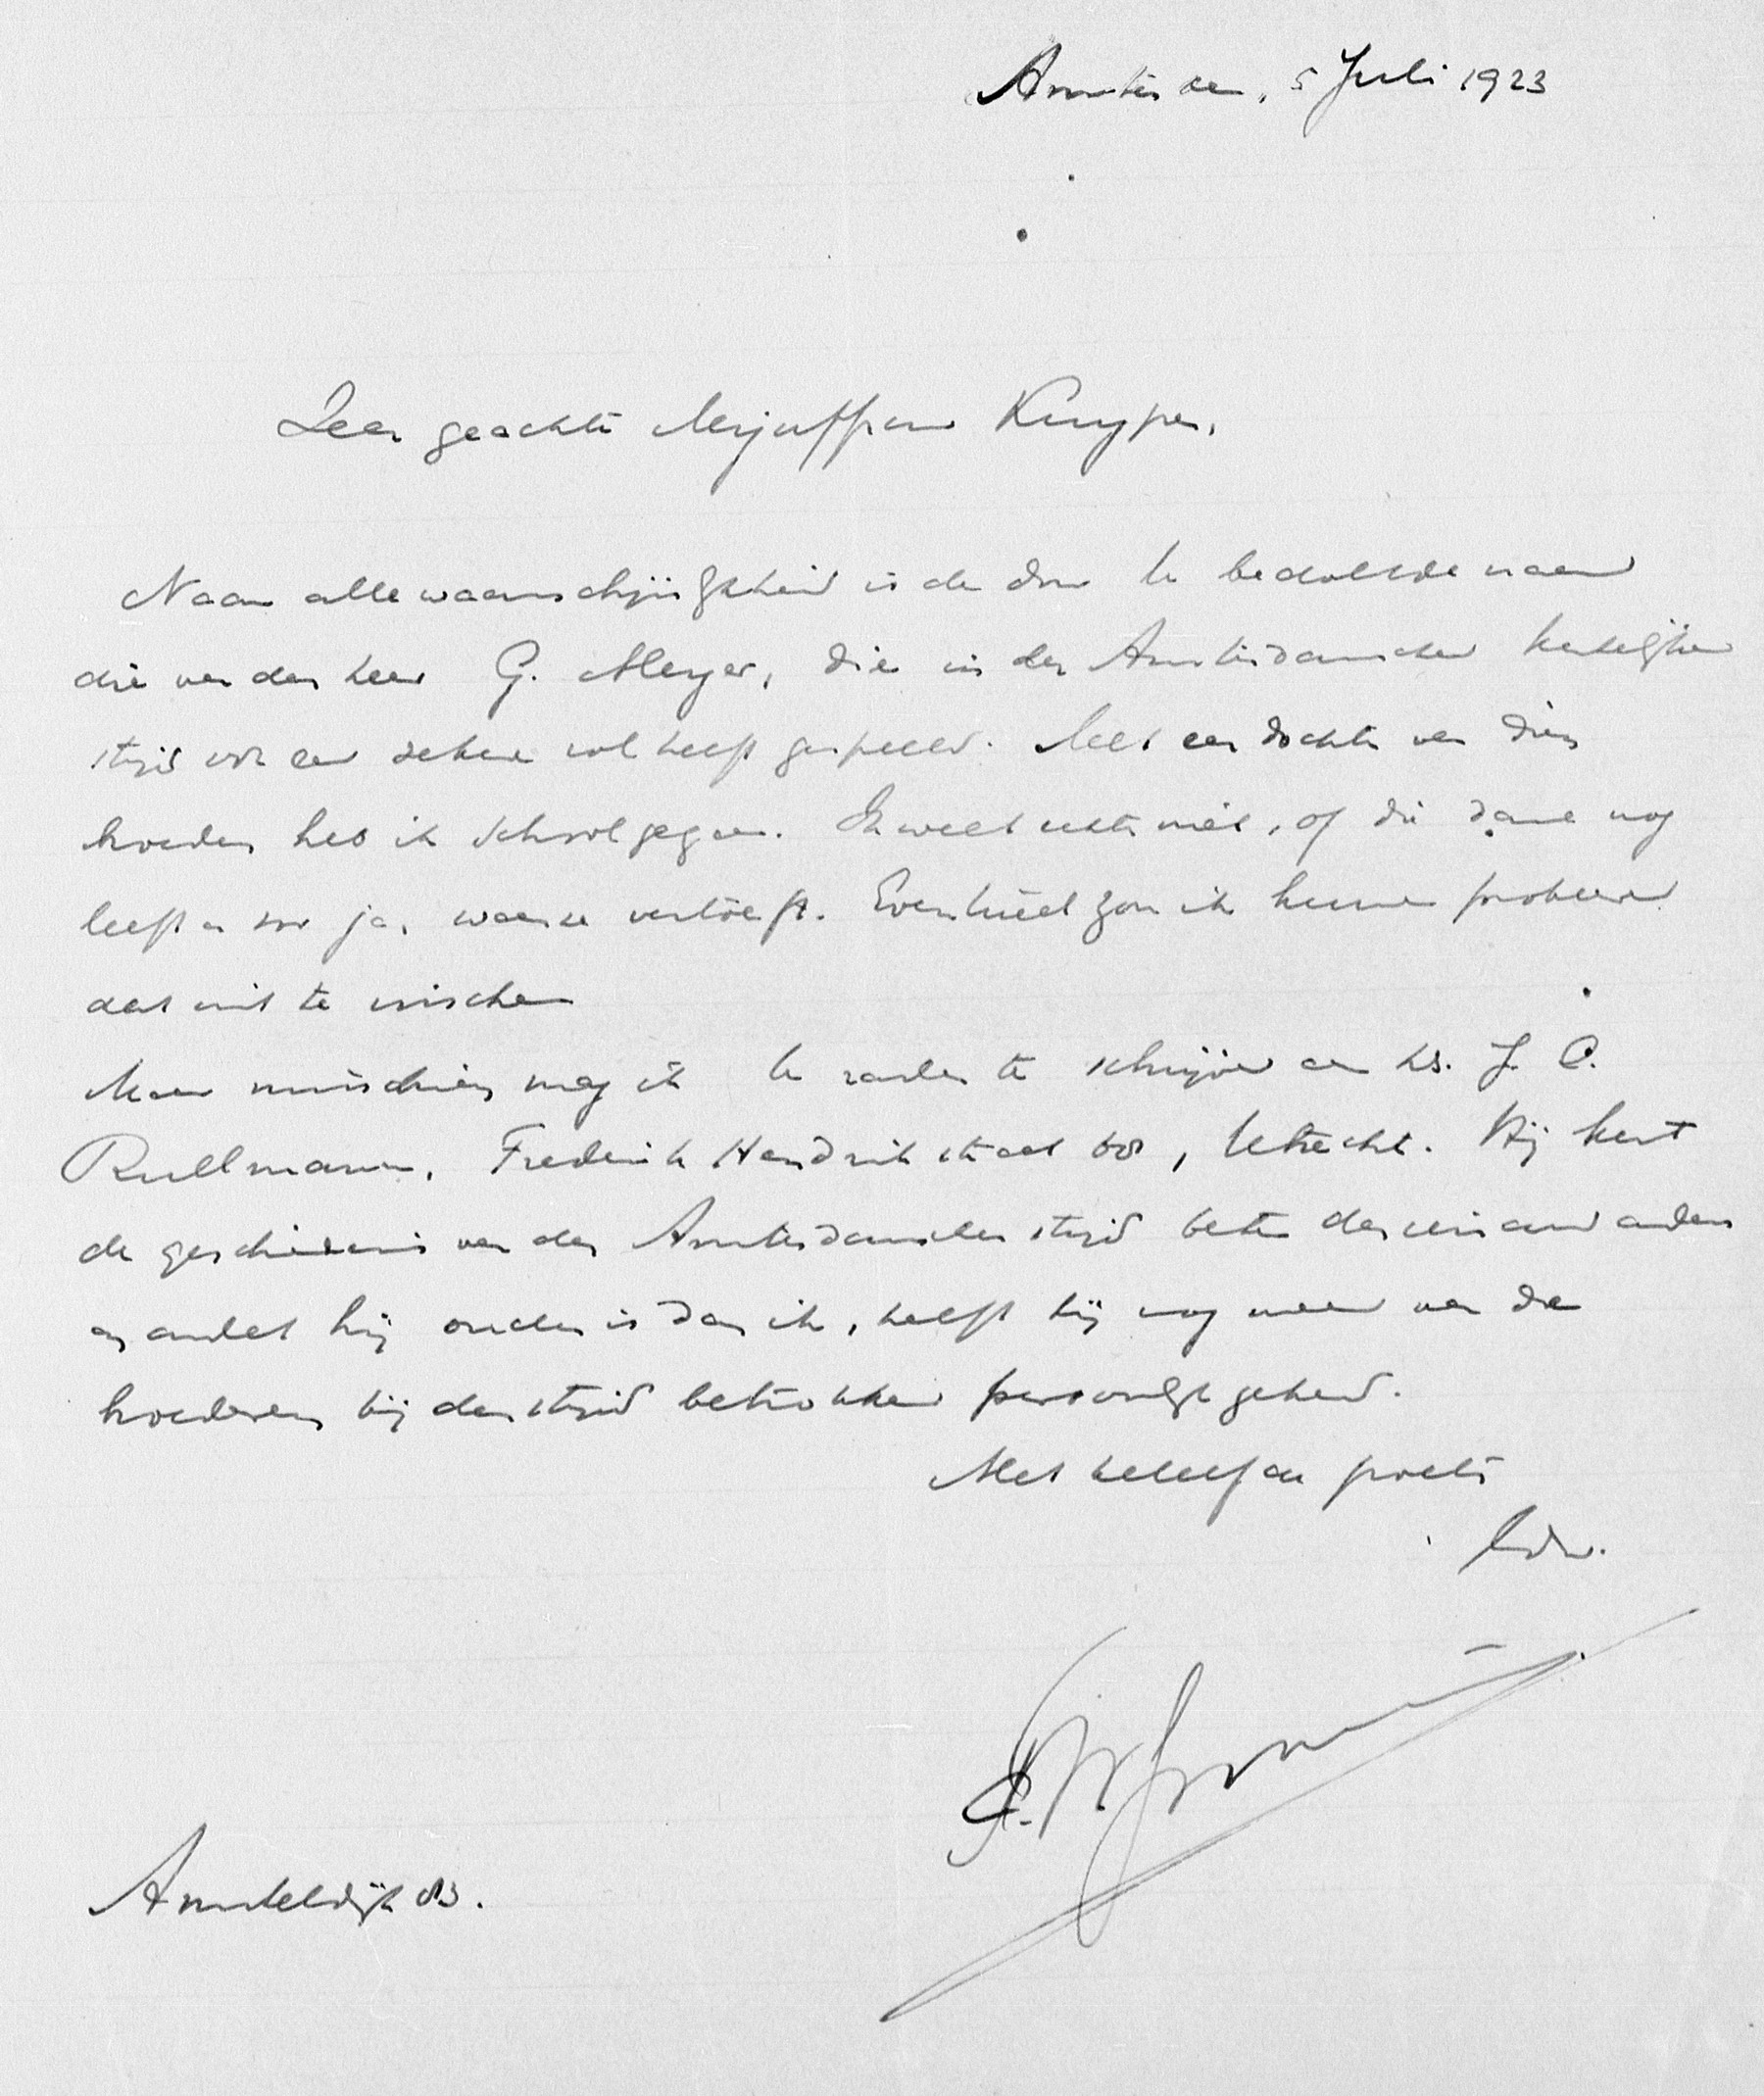 Amsterdam, 5 Juli 1923
Zeer geachte Mejuffrouw Kuyper,
Naar alle waarschijnlijkheid is de door U bedoelde naam
die van den heer G. Meyer, die in den Amsterdamschen kerkelijken
strijd een zekere rol heeft gespeeld. Met een dochter van dien
broeder heb ik school gegaan. Ik weet echter niet, of die dame nog
leeft en zoo ja, waar ze vertoeft. Eventueel zou ik kunnen probeeren
dat uit te visschen
Maar misschien mag ik U raden te schrijven aan Ds. J. C.
Rullmann, Frederik Hendrikstraat, Utrecht. Hij kent
de geschiedenis van den Amsterdamschen strijd beter dan iemand anders
en omdat hij ouder is dan ik, heeft hij nog meer van de
broederen bij den strijd betrokken persoonlijk gekend.
Met beleefde groets
Uw dw.
Amsteldijk 83.